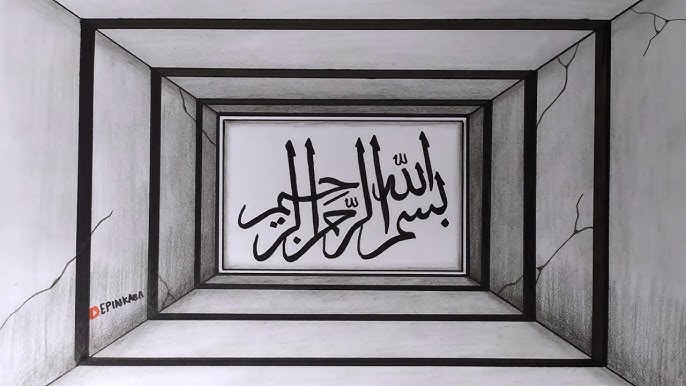 بسم الله الرحمن الرحيم
EPINKABA